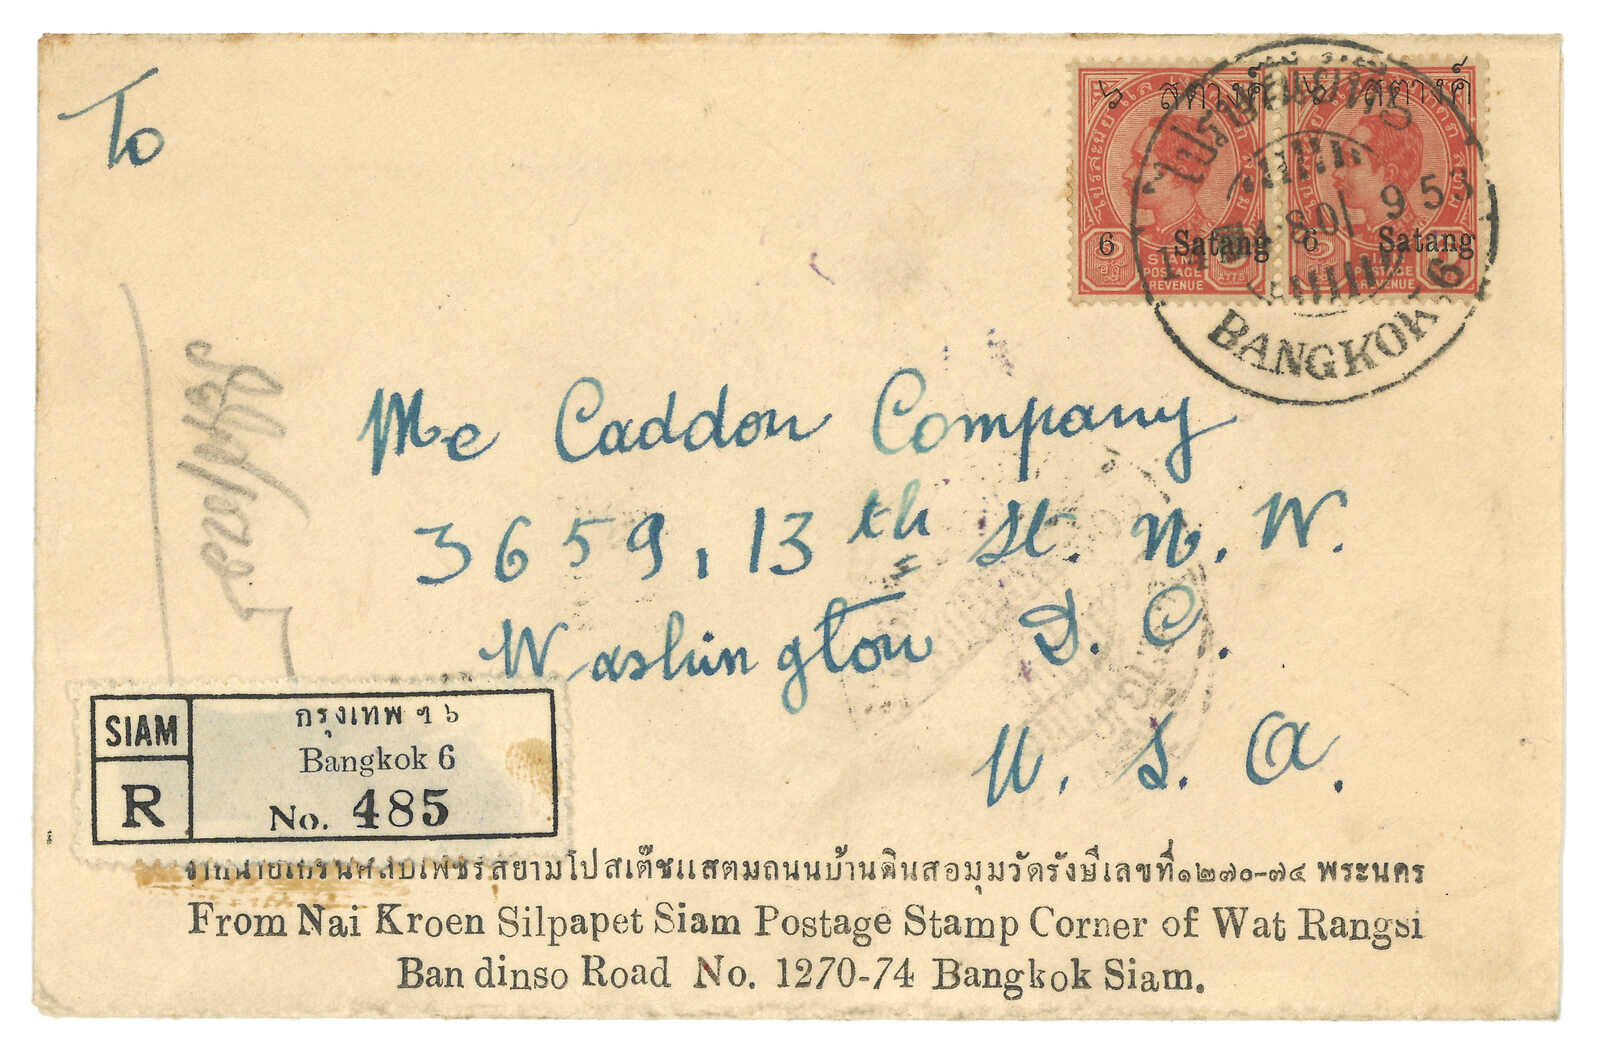 To
๖ สตางค์ ๖ สตางค์
6 Satang 6 Satang
SIAM
POSTAGE POSTAGE
REVENUE REVENUE
9 53
BANGKOK 6
Mc Caddon Company
3659, 13th St. N. W.
Washington D. C.
U. S. A.
SIAM
R
กรุงเทพ ฯ ๖
Bangkok 6
No. 485
สยามโปสเต๊ชแสตมถนนบ้านดินสอมุมวัดรังษีเลขที่๑๒๗๐-๗๔ พระนคร
From Nai Kroen Silpapet Siam Postage Stamp Corner of Wat Rangsi
Ban dinso Road No. 1270-74 Bangkok Siam.